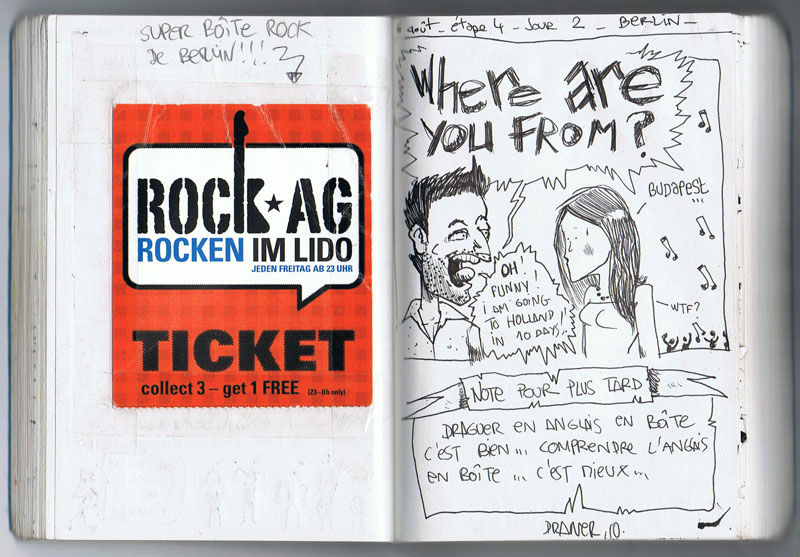 SUPER BOÎTE ROCK
DE BERLIN!!!
ROCK★AG
ROCKEN IM LIDO
JEDEN FREITAG AB 23 UHR
TICKET
collect 3 – get 1 FREE (23–0h only)
août - étape 4 - Jour 2 - BERLIN -
Where are
YOU FROM?
BUDAPEST
...
OH!
FUNNY!
I AM GOING
TO HOLLAND
IN 10 DAYS...!
WTF?
NOTE POUR PLUS TARD ...
DRAGUER EN ANGLAIS EN BOÎTE
C'EST BIEN... COMPRENDRE L'ANGLAIS
EN BOÎTE ... C'EST MIEUX...
DRANER, 10.